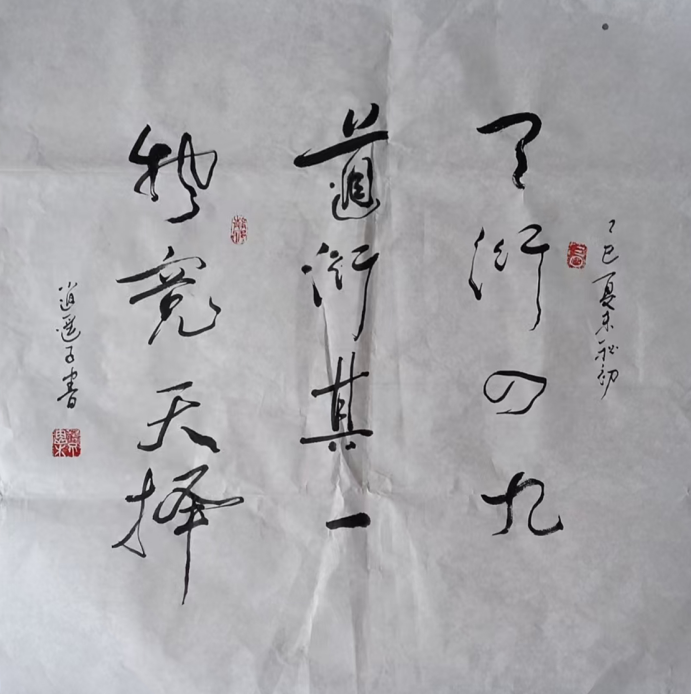 乙巳夏末秋初
天衍四九
道衍其一
物竞天择
逍遥子書